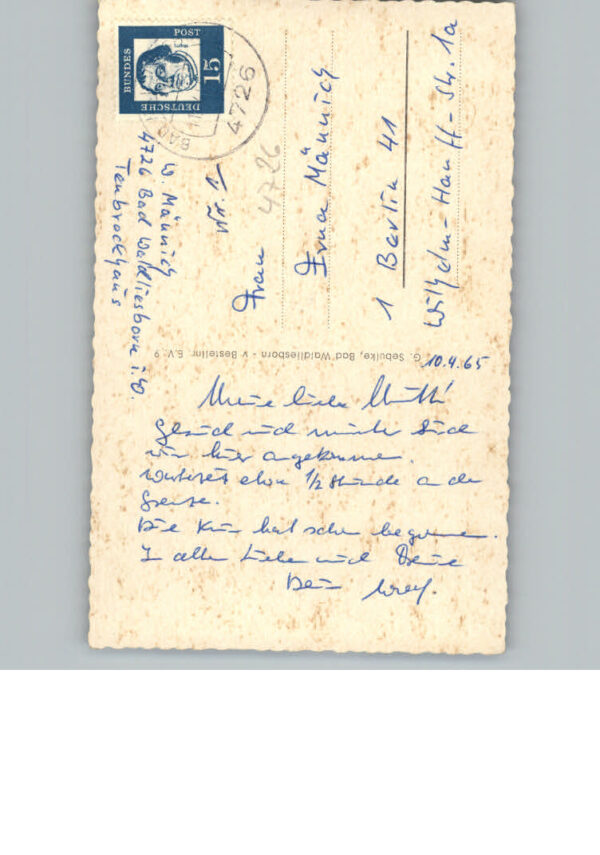 DEUTSCHE
BUNDES
POST
15
BAD
4726
W. Männich
4726 Bad Waldliesborn i.W.
Tenbrockhaus
Nr. 1
4726
Frau
Erna Männich
1 Berlin 41
Wilhelm-Hauff-Str. 1a
G. Sebulke, Bad Waldliesborn - v Bestellnr B.V. 9
10.4.65
Meine liebe Mutti!
Gesund und munter sind
wir hier angekommen.
Wartezeit etwa 1/2 Stunde an der
Grenze.
Die Kur hat schon begonnen.
In aller Liebe und Treue
Dein